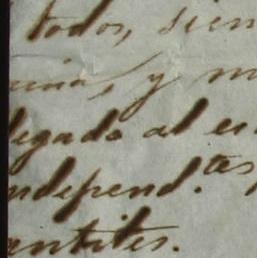 todos, sien
una, y m
legado al es
independ.tes
antites.